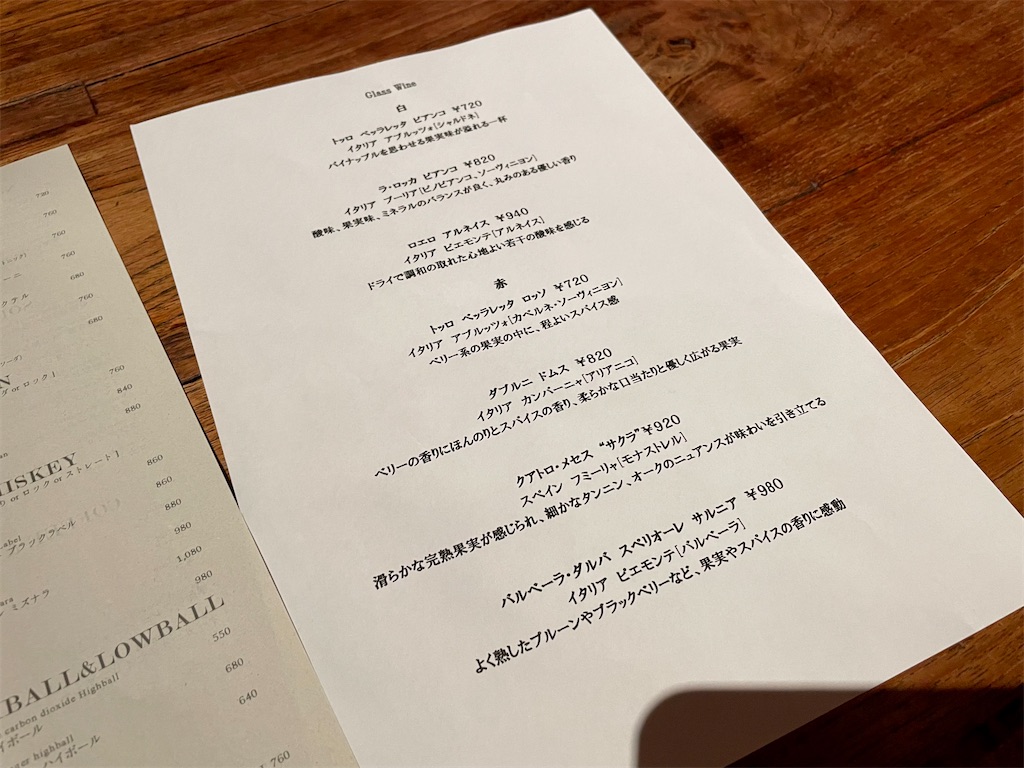 720
760
760
760
680
クテル
760
680
N
グ or ロック ]
760
840
880
HISKEY
り or ロック or ストレート ]
860
860
abel
ブラックラベル
880
980
1,080
ara
ン ミズナラ
980
BALL&LOWBALL
550
carbon dioxide Highball
イボール
680
ger highball
ハイボール
640
760
Glass Wine
白
トッロ ペッラレッタ ビアンコ ¥720
イタリア アブルッツォ[シャルドネ]
パイナップルを思わせる果実味が溢れる一杯
ラ・ロッカ ビアンコ ¥820
イタリア プーリア[ピノビアンコ、ソーヴィニヨン]
酸味、果実味、ミネラルのバランスが良く、丸みのある優しい香り
ロエロ アルネイス ¥940
イタリア ピエモンテ[アルネイス]
ドライで調和の取れた心地よい若干の酸味を感じる
赤
トッロ ペッラレッタ ロッソ ¥720
イタリア アブルッツォ[カベルネ・ソーヴィニヨン]
ベリー系の果実の中に、程よいスパイス感
ダブルニ ドムス ¥820
イタリア カンパーニャ[アリアニコ]
ベリーの香りにほんのりとスパイスの香り、柔らかな口当たりと優しく広がる果実
クアトロ・メセス “サクラ”¥920
スペイン フミーリャ[モナストレル]
滑らかな完熟果実が感じられ、細かなタンニン、オークのニュアンスが味わいを引き立てる
バルベーラ・ダルバ スペリオーレ サルニア ¥980
イタリア ピエモンテ[バルベーラ]
よく熟したプルーンやブラックベリーなど、果実やスパイスの香りに感動